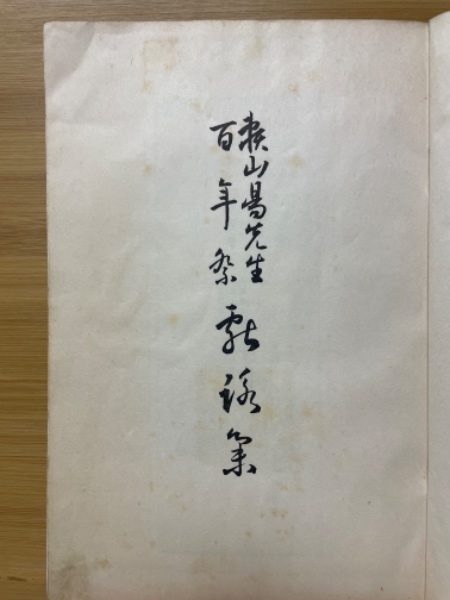 頼山陽先生
百年祭献詠集